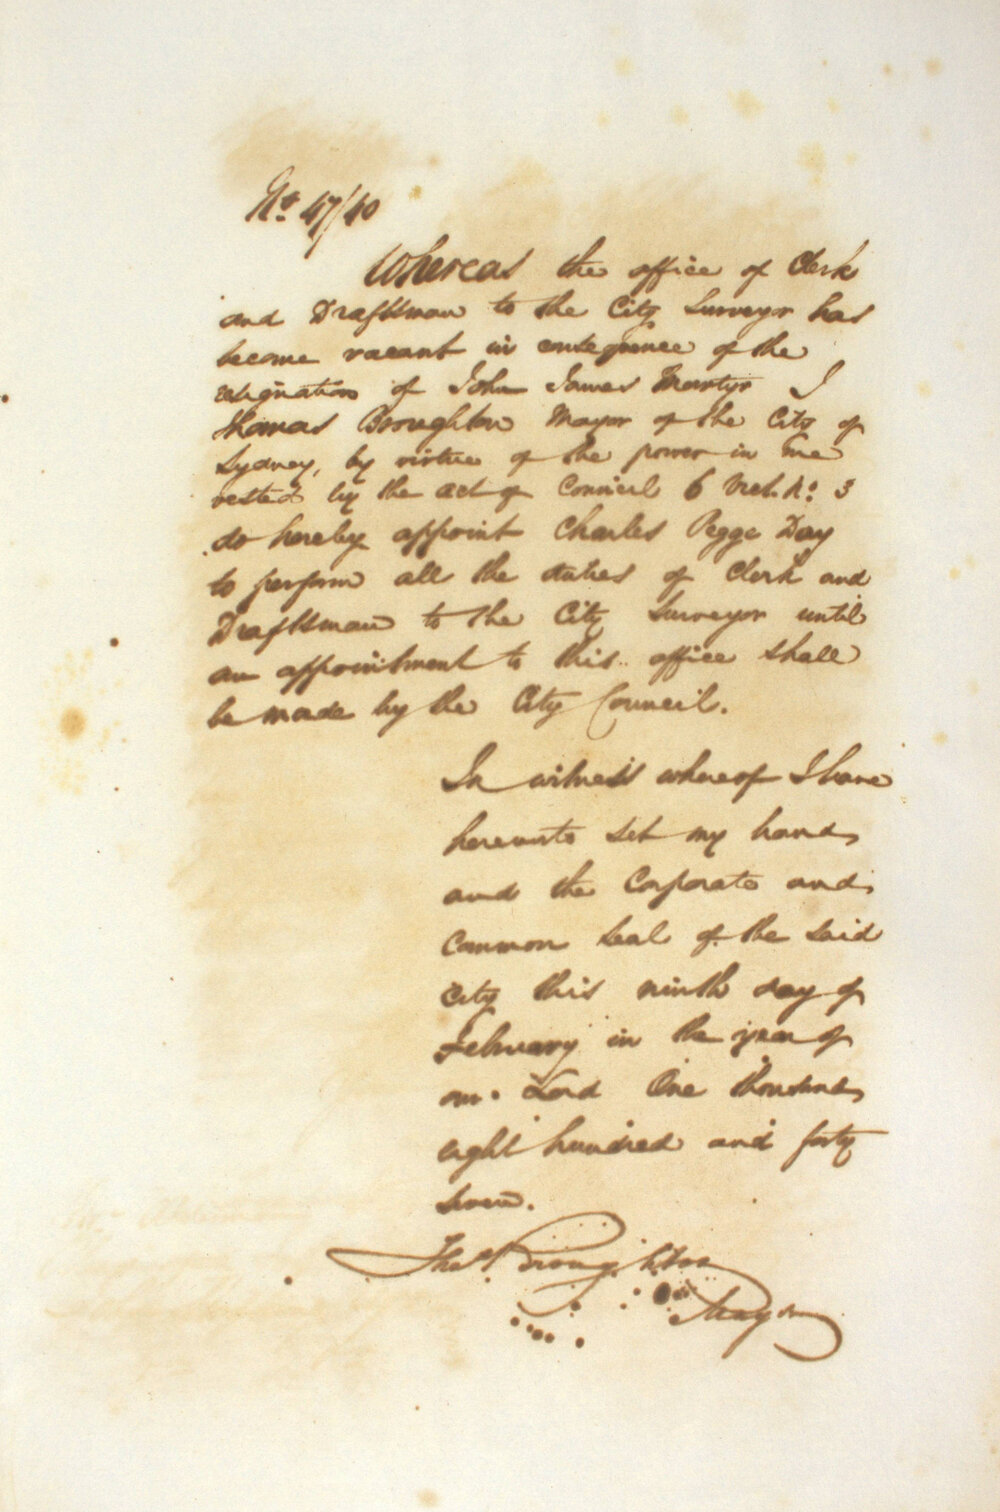 No. 47/40
Whereas the office of Clerk
and Draftsman to the City Surveyor has
become vacant in consequence of the
resignation of John James Martyr I
Thomas Broughton Mayor of the City of
Sydney, by virtue of the power in me
vested by the act of Council 6 Vict. No: 3
do hereby appoint Charles Pegge Day
to perform all the duties of Clerk and
Draftsman to the City Surveyor until
an appointment to this office shall
be made by the City Council.
In witness whereof I have
hereunto set my hand
and the Corporate and
Common Seal of the said
City this ninth day of
February in the year of
our Lord One thousand
eight hundred and forty
seven.
Thos. Broughton
Mayor